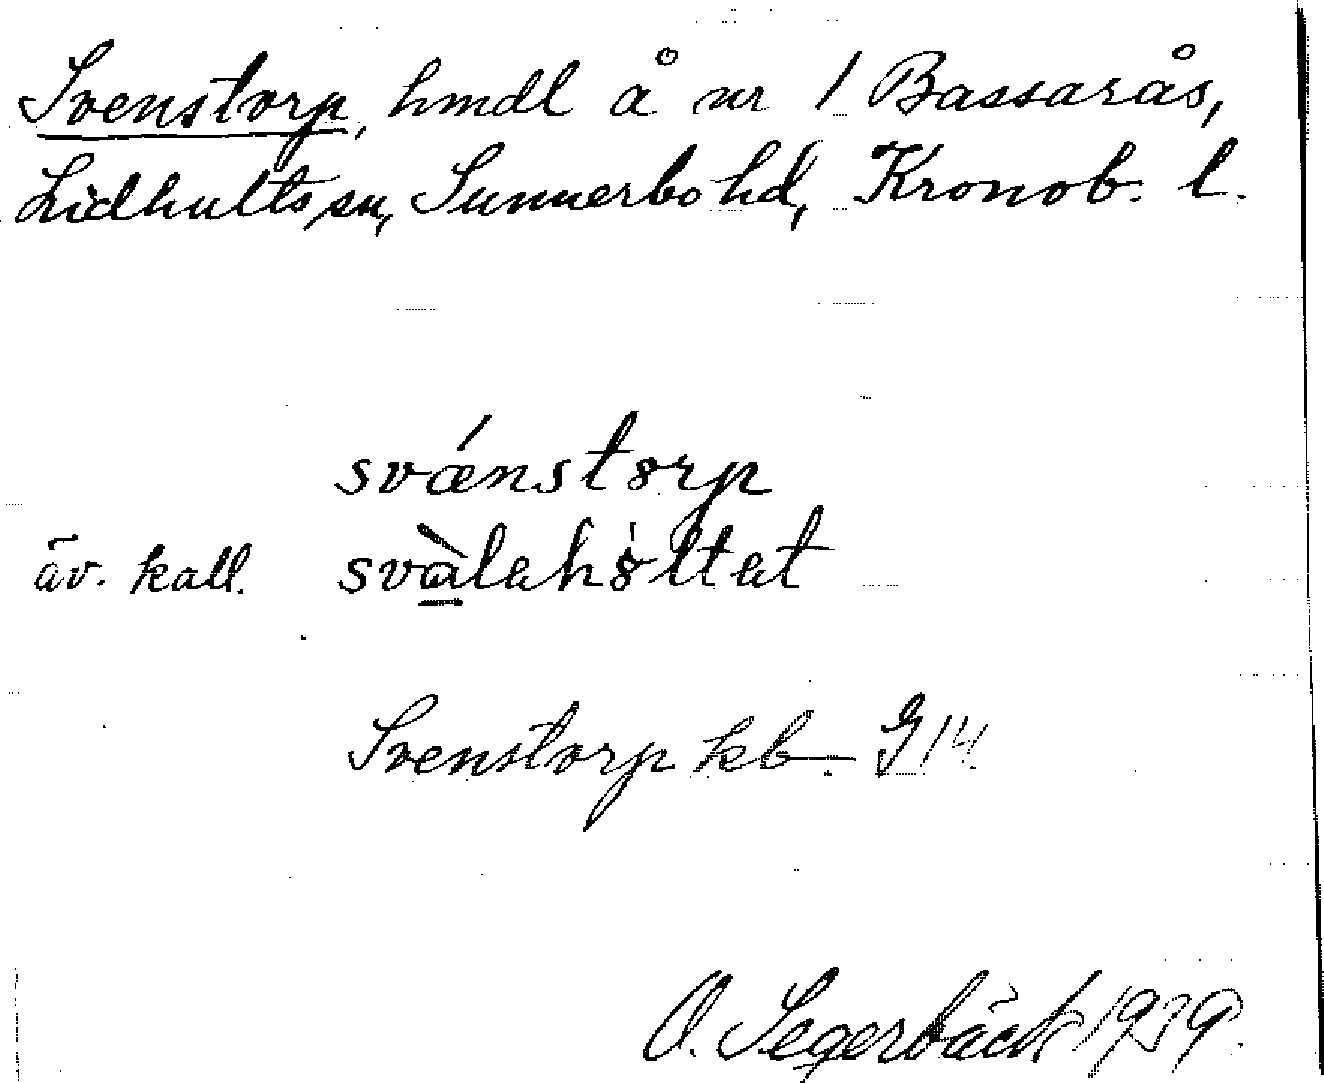 Svenstorp, hmdl å nr 1 Bassarås,
Lidhults sn, Sunnerbo hd, Kronob. l.
svǽnstorp
äv. kall. svàlahòltat
Svenstorp kb. G 14
O. Segerbäck 1939.